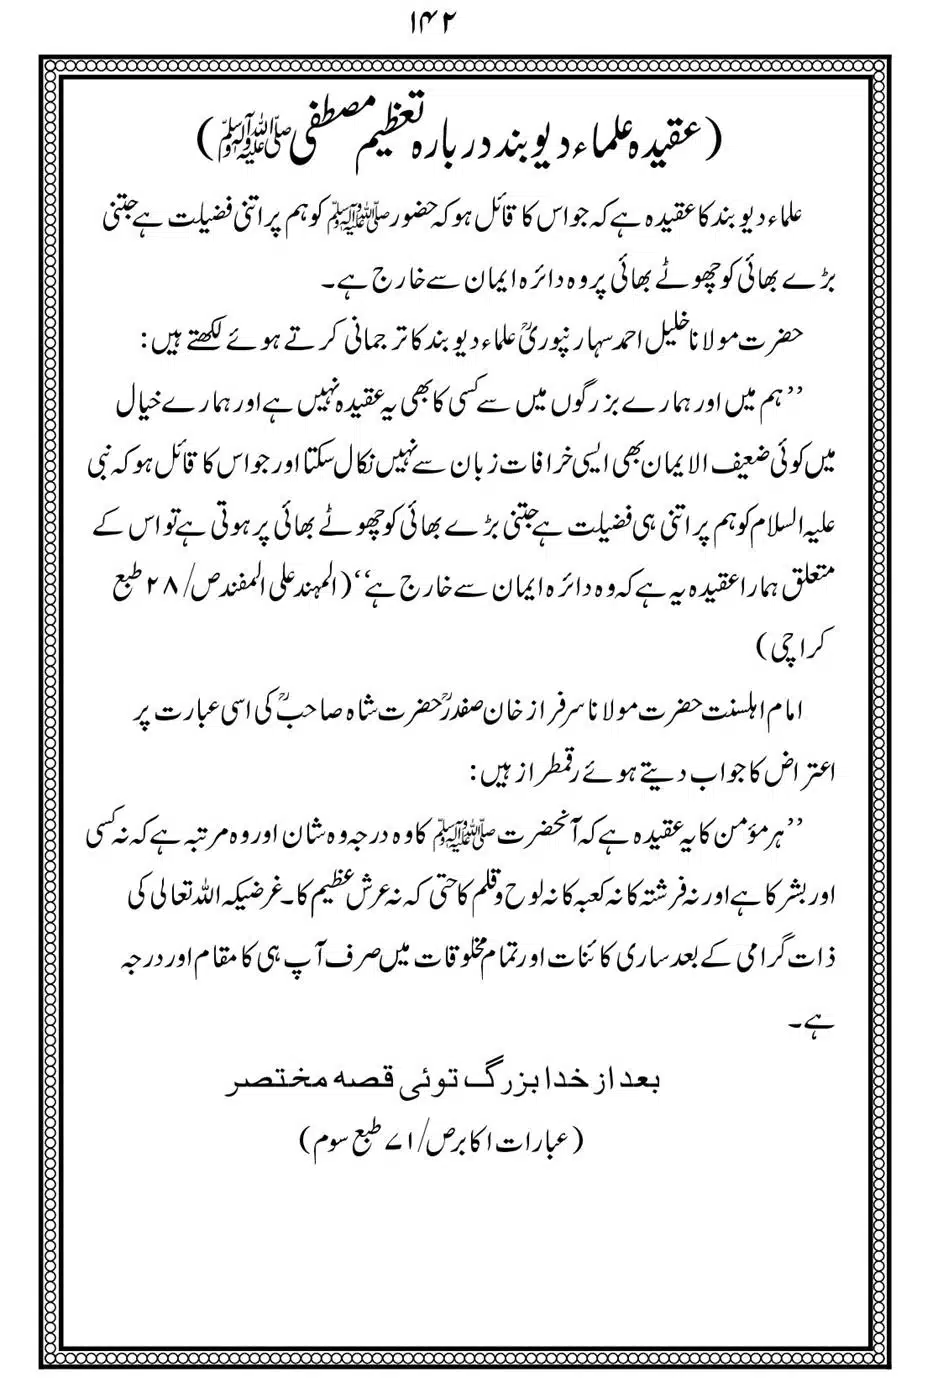 ۱۴۲
(عقیدہ علماء دیوبند دربارہ تعظیم مصطفی ﷺ)
علماء دیوبند کا عقیدہ ہے کہ جو اس کا قائل ہو کہ حضور ﷺ کو ہم پر اتنی فضیلت ہے جتنی
بڑے بھائی کو چھوٹے بھائی پر وہ دائرہ ایمان سے خارج ہے۔
حضرت مولانا خلیل احمد سہارنپوریؒ علماء دیوبند کا ترجمانی کرتے ہوئے لکھتے ہیں:
’’ہم میں اور ہمارے بزرگوں میں سے کسی کا بھی یہ عقیدہ نہیں ہے اور ہمارے خیال
میں کوئی ضعیف الایمان بھی ایسی خرافات زبان سے نہیں نکال سکتا اور جو اس کا قائل ہو کہ نبی
علیہ السلام کو ہم پر اتنی ہی فضیلت ہے جتنی بڑے بھائی کو چھوٹے بھائی پر ہوتی ہے تو اس کے
متعلق ہمارا عقیدہ یہ ہے کہ وہ دائرہ ایمان سے خارج ہے‘‘ (المہند علی المفند ص/۲۸ طبع
کراچی)
امام اہلسنت حضرت مولانا سرفراز خان صفدرؒ حضرت شاہ صاحبؒ کی اسی عبارت پر
اعتراض کا جواب دیتے ہوئے رقمطراز ہیں:
’’ہر مؤمن کا یہ عقیدہ ہے کہ آنحضرت ﷺ کا وہ درجہ وہ شان اور وہ مرتبہ ہے کہ نہ کسی
اور بشر کا ہے اور نہ فرشتہ کا نہ کعبہ کا نہ لوح و قلم کا حتی کہ نہ عرش عظیم کا۔ غرضیکہ اللہ تعالی کی
ذات گرامی کے بعد ساری کائنات اور تمام مخلوقات میں صرف آپ ہی کا مقام اور درجہ
ہے۔
بعد از خدا بزرگ توئی قصہ مختصر
(عبارات اکابر ص/۷۱ طبع سوم)